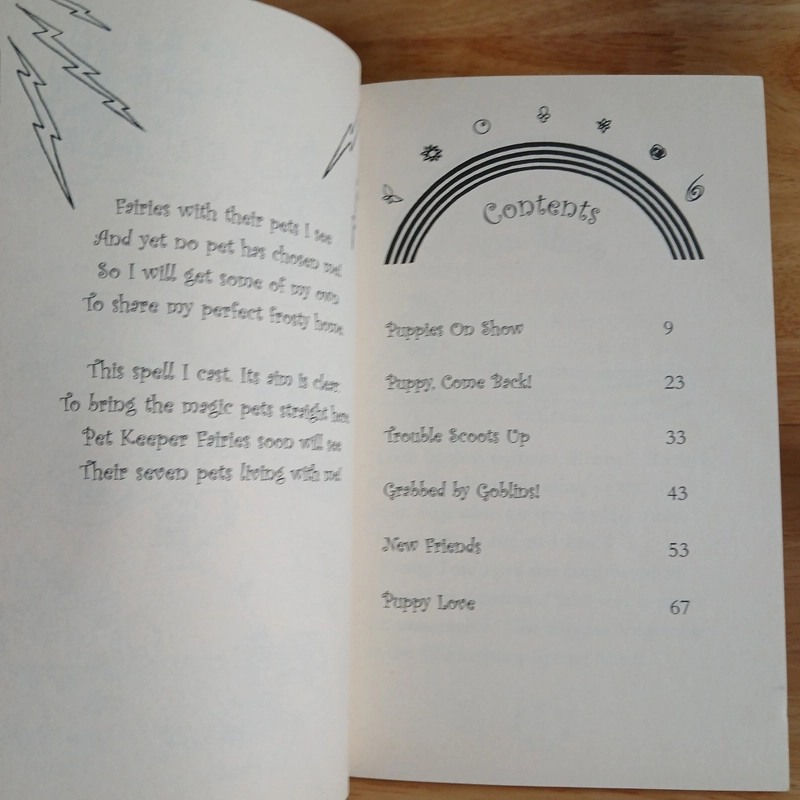 Fairies with their pets I see
And yet no pet has chosen me!
So I will get some of my own
To share my perfect frosty home.
This spell I cast. Its aim is clear:
To bring the magic pets straight here.
Pet Keeper Fairies soon will see
Their seven pets living with me!
Contents
Puppies On Show 9
Puppy, Come Back! 23
Trouble Scoots Up 33
Grabbed by Goblins! 43
New Friends 53
Puppy Love 67